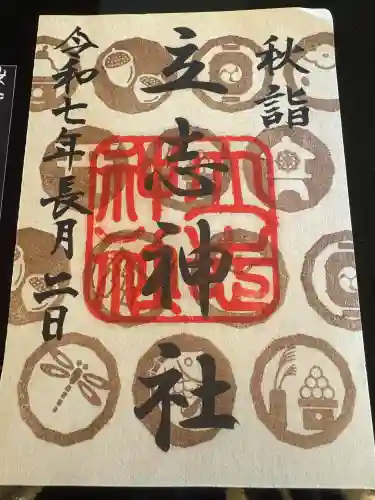 秋詣
立志神社
立志神社
令和七年長月二日